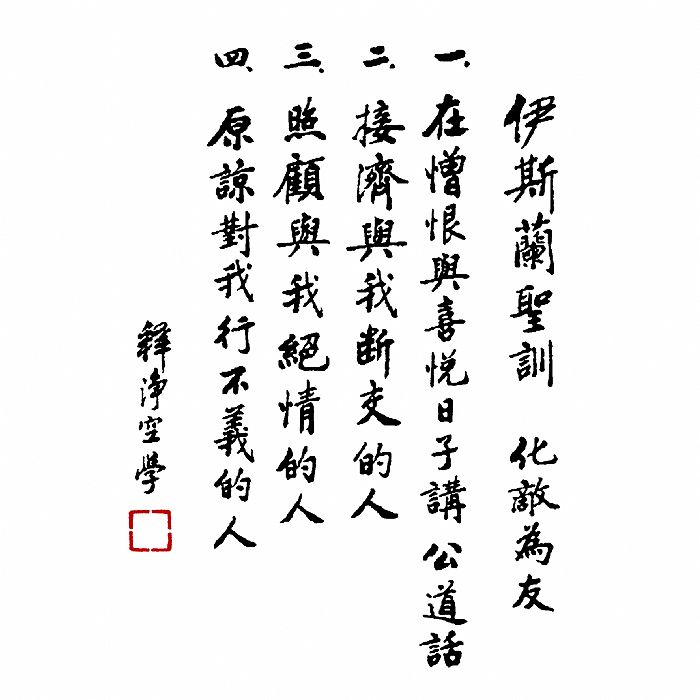 伊斯蘭聖訓 化敵為友
一、在憎恨與喜悅日子講公道話
二、接濟與我斷交的人
三、照顧與我絕情的人
四、原諒對我行不義的人
釋淨空學